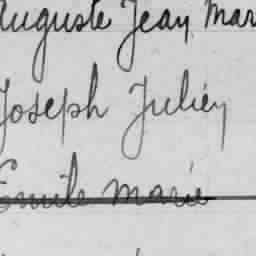 Auguste Jean Mar
Joseph Julien
Emile Marie